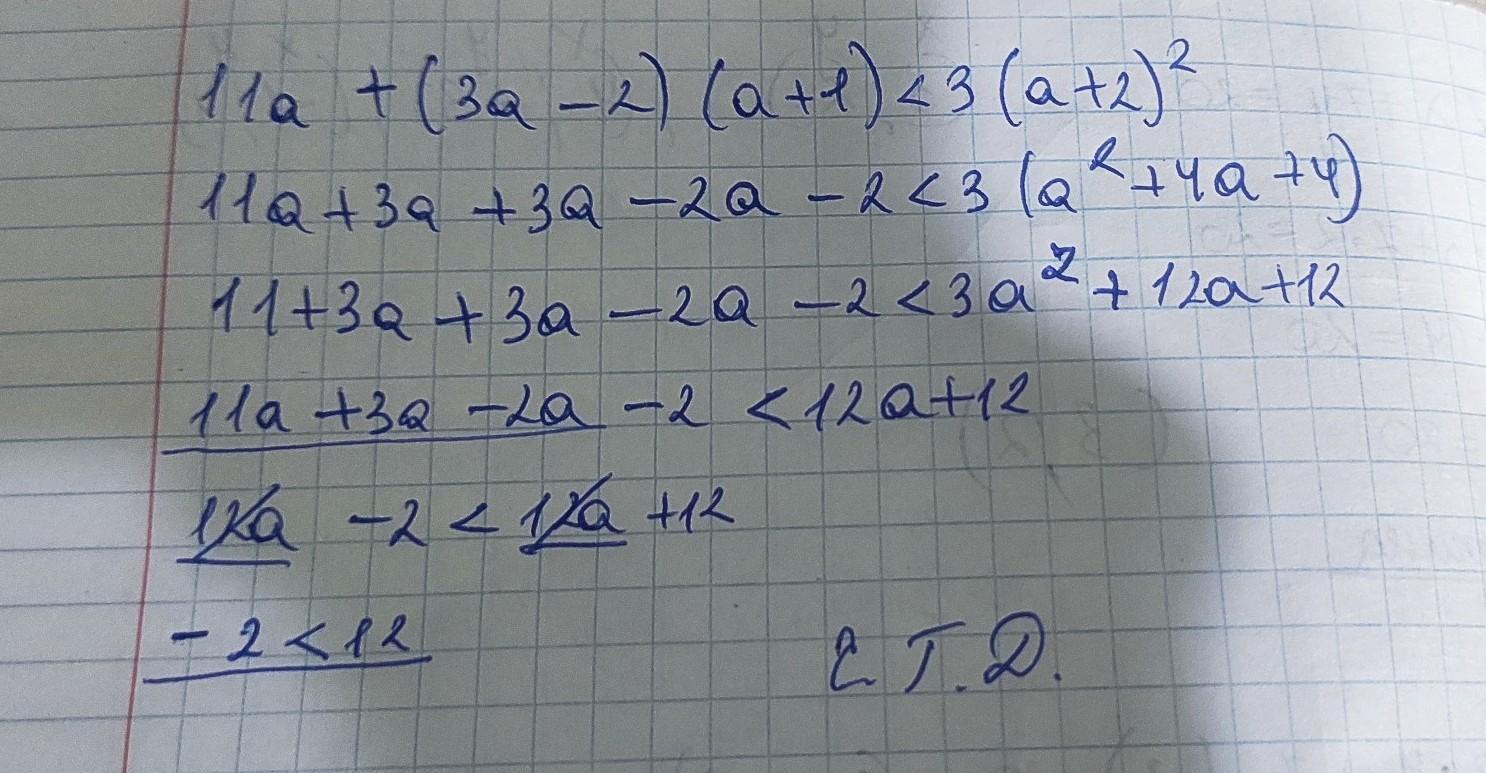 11a + (3a - 2) (a + 1) < 3 (a + 2)²
11a + 3a + 3a - 2a - 2 < 3 (a² + 4a + 4)
11 + 3a + 3a - 2a - 2 < 3a² + 12a + 12
11a + 3a - 2a - 2 < 12a + 12
12a - 2 < 12a + 12
- 2 < 12
Т.Д.